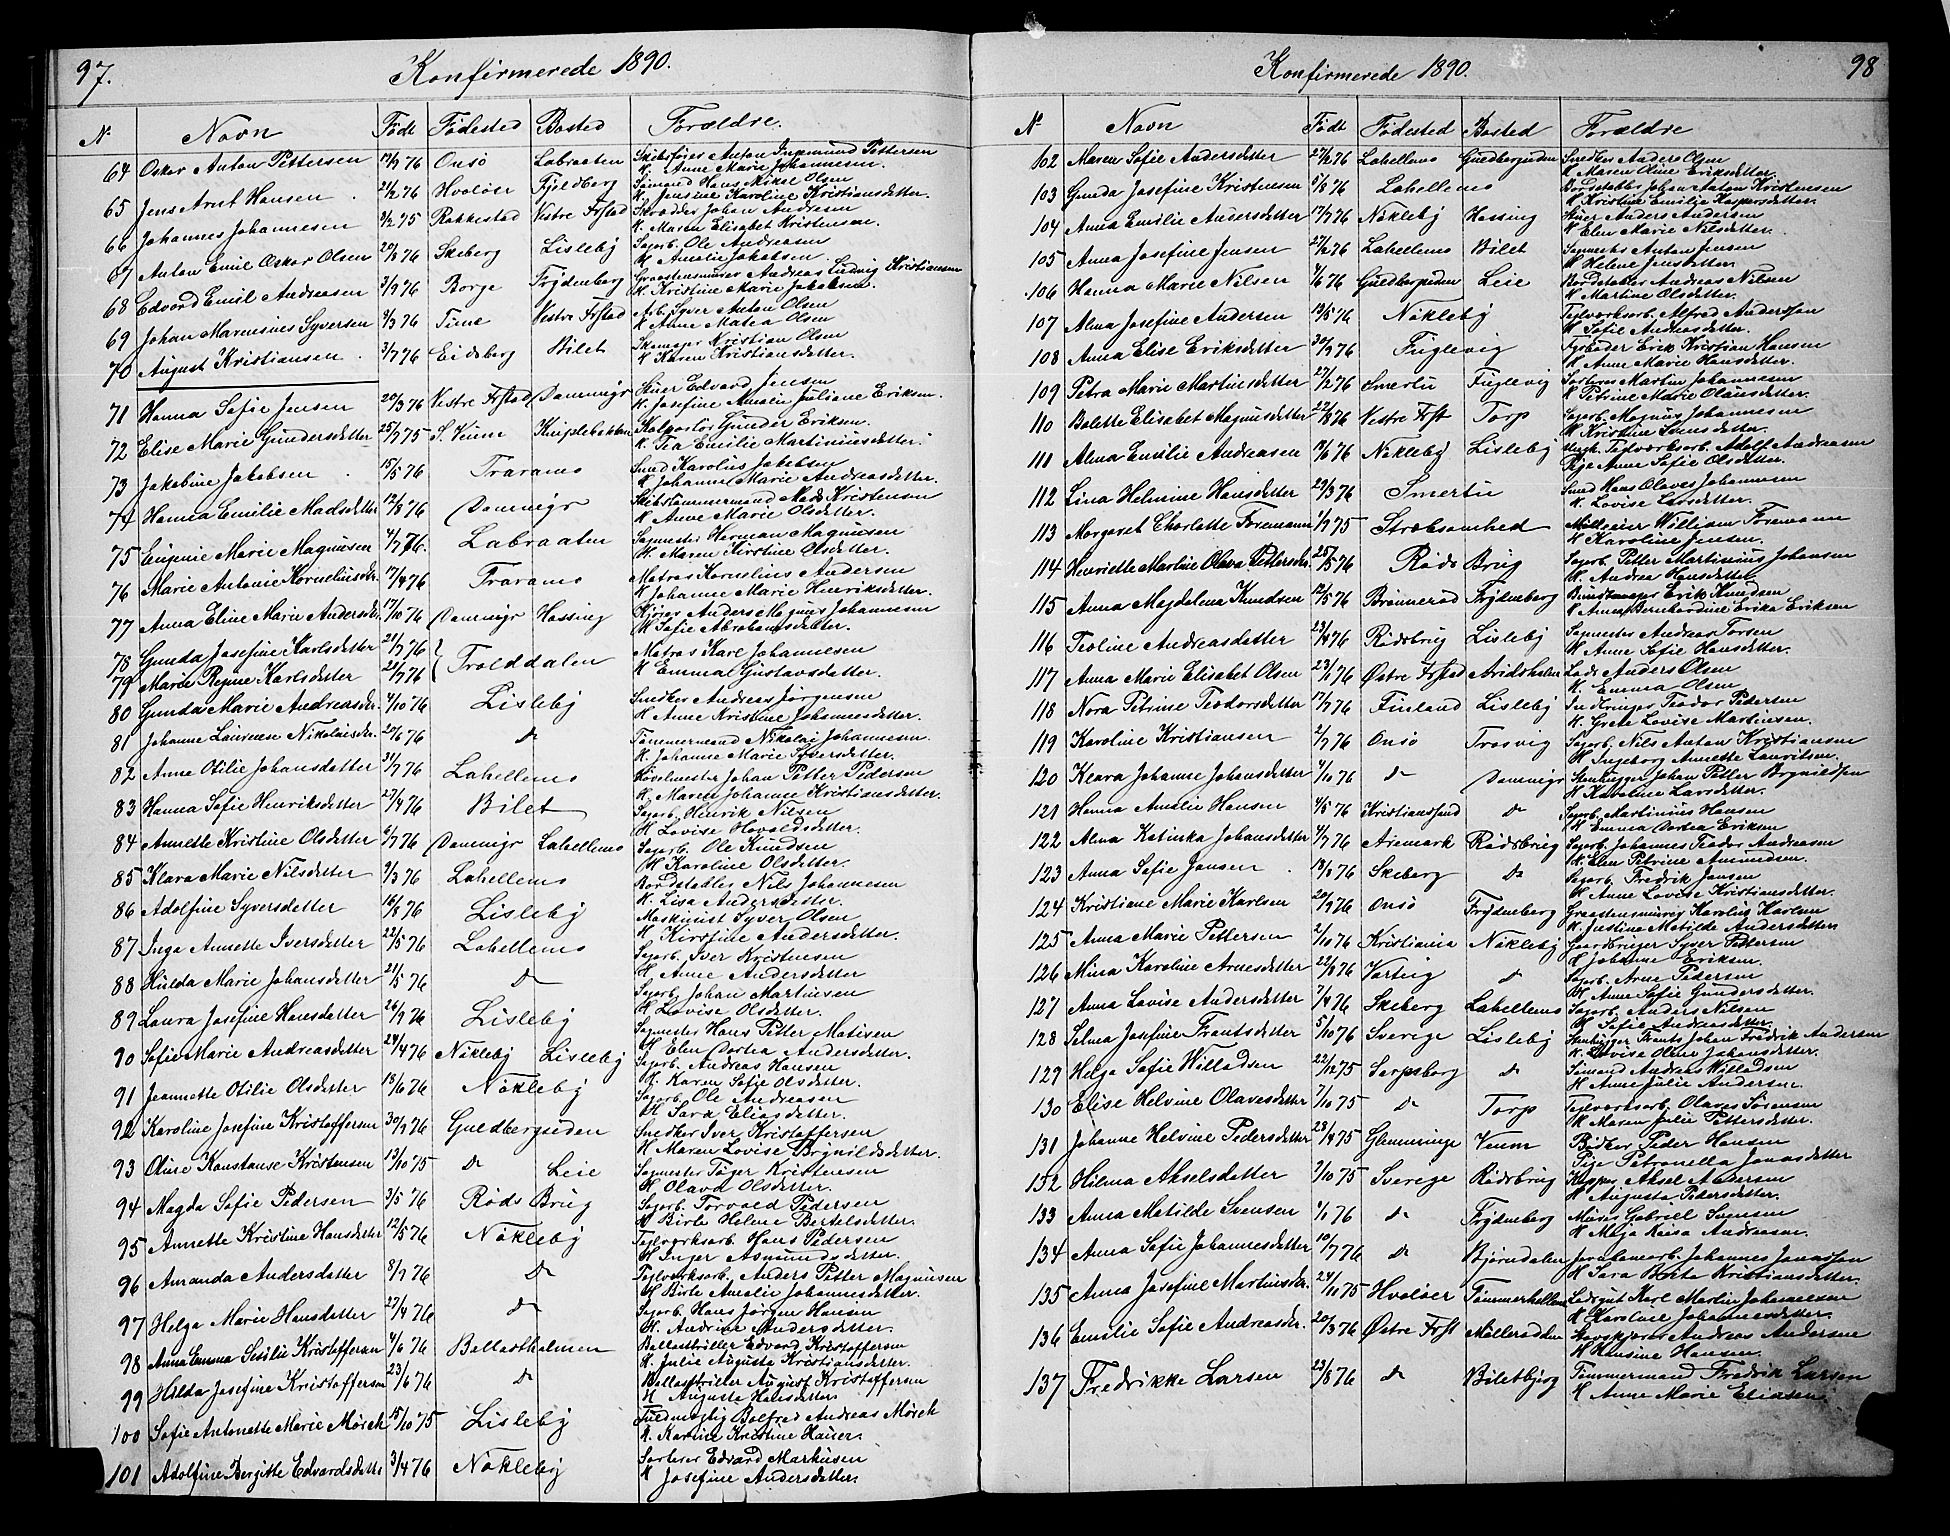 97.
Konfirmerede 1890.
№ Navn Født Fødested Bosted Forældre.
64 Oskar Anton Pettersen 19/7 76 Onsø Labraaten Skibsfører Anton Ingemund Pettersen
K. Anne Marie Johannesen.
65 Jens Arnt Hansen 21/2 76 Hvaløer Fjeldberg Sömand Hans Mikel Olsen
K. Jensine Karoline Kristiansdatter.
66 Johannes Johannesen 3/2 75 Rakkestad Vestre Frstad Skrædder Johan Andersen
K. Maren Elisabet Kristensen.
67 Anton Emil Oskar Olsen 20/8 76 Skeberg Lisleby Sagarb. Ole Andreasen
K Amalie Jakobsen.
68 Edvard Emil Andreasen 3/9 76 Borge Frydenberg Graastensmurer Andreas Ludvig Kristiansen
K Kristine Marie Jakobsen.
69 Johan Marensius Syversen 9/3 76 Tune Vestre Frstad Arb. Syver Anton Olsen
K Anne Matea Olsen
70 August Kristiansen 3/7 76 Eidsberg Bilet Skomager Kristian Olsen
K Karen Kristiansdatter.
71 Hanna Sofie Jensen 20/3 76 Vestre Frstad Dammyr Huer Edvard Jensen
K. Josefine Amalie Juliane Eriksen.
72 Elise Marie Gundersdatter 25/7 75 S. Veum Kniplebakken Kolportör Gunder Eriksen.
K. Tea Emilie Martiniusdatter.
73 Jakobine Jakobsen 15/5 76 Traramo Smed Karolius Jakobsen
K Johanne Marie Andreasdatter.
74 Hanna Emilie Madsdatter 12/8 76 Dammyr Skibstømmermand Mads Kristensen
K Anne Marie Olsdatter.
75 Eugenie Marie Magnusen 4/7 76. Labraaten Sagmester Herman Magnusen
K. Maren Kirstine Olsdatter.
76 Marie Antonie Korneliusdr. 17/4 76 Traramo Matros Kornelius Andersen
K Johanne Marie Henriksdatter.
77 Anna Eline Marie Andersdr 17/10 76 Dammyr Hassing Kjører Anders Magnus Johannesen
K Sofie Abrahamsdatter.
78 Gunda Josefine Karlsdatter 21/7 76 Trolddalen Matros Karl Johannesen
79 Marie Regine Karlsdatter 21/7 76 K Emma Gustavsdatter.
80 Gunda Marie Andreasdr. 4/10 76 Lisleby Snedker Andreas Jörgensen
K Anne Kristine Johannesdatter.
81 Johanne Laurense Nikolaisdr. 27/6 76 do Tømmermand Nikolai Johannesen.
K. Johanne Marie Syversdatter.
82 Anne Otilie Johansdatter 31/7 76 Lahellemo Høvelmester Johan Petter Pedersen
K. Maren Johanne Kristiansdatter.
83 Hanna Sofie Henriksdatter 27/4 76 Bilet Sagarb. Henrik Nilsen
K Lovise Havaldsdatter.
84 Annette Kristine Olsdatter 6/7 76 Dammyr Lahellemo Sagarb. Ole Knudsen
K Karoline Olsdatter.
85 Klara Marie Nilsdatter 9/3 76 Lahellemo Bordstabler Nils Johannesen
K. Lisa Andersdatter.
86 Adolfine Syversdatter 16/8 76 Lisleby Maskinist Syver Olsen
K Kirstine Andersdatter.
87 Inga Annette Iversdatter 22/5 76 Lahellemo Sagarb. Iver Kristensen
K Anne Andersdatter.
88 Hulda Marie Johansdatter 21/5 76 do Sagarb. Johan Martinsen
K Lovise Olsdatter.
89 Laura Josefine Hansdatter 26/9 76 Lisleby Sagmester Hans Petter Matisen
K Elen Dortea Andersdatter.
90 Sofie Marie Andreasdatter 24/4 76 Nökleby Lisleby Sagarb. Andreas Hansen
K. Karen Sofie Olsdatter.
91 Jeannette Otilie Olsdatter 18/6 76 Nökleby Sagarb. Ole Andreasen
K Sara Eliasdatter.
92 Karoline Josefine Kristoffersen 30/7 76 Guldbergsuden Snedker Iver Kristoffersen
K Maren Lovise Brynildsdatter.
93 Oline Konstanse Kristensen 13/10 75 do Leie Sagmester Töger Kristensen
K Olava Olsdatter.
94 Magda Sofie Pedersen 3/5 76 Røds Brug Sagarb. Torvald Pedersen
K Birte Helene Bertelsdatter.
95 Annette Kristine Hansdatter 12/5 76 Nökleby Teglverksarb. Hans Pedersen
K Inger Asmundsdatter.
96 Amanda Andersdatter 8/9 76 do Teglverksarb. Anders Petter Magnusen
K Birte Amalie Johannesdatter.
97 Helga Marie Hansdatter 27/4 76 do Sagarb. Hans Jørgen Hansen
K. Andrine Andersdatter.
98 Anna Emma Sesilie Kristoffersen 4/6 76 Ballastholmen Ballasttriller Edvard Kristoffersen
K. Julie Augusta Kristiansdatter.
99 Hilda Josefine Kristoffersen 23/6 76 do Ballasttriller August Kristoffersen
K Augusta Hansdatter.
100 Sofie Antonette Marie Mörch 15/10 75 Lisleby Fuldmægtig Bolfred Andreas Mörch
K. Karine Kristine Hauer.
101 Adolfine Bergitte Edvardsdatter 3/4 76 Nökleby Sorterer Edvard Markusen
K Josefine Andersdatter.
Konfirmerede 1890.
98
№ Navn Født Fødested Bosted Forældre
102 Maren Sofie Andersdatter 27/2 76 Lahellemo Guldbergsuden Snedker Anders Olsen
K Maren Oline Eriksdatter.
103 Gunda Josefine Kristensen 5/8 76 Lahellemo Bordstabler Johan Anton Kristensen
K Kristine Emilie Kaspersdatter.
104 Anna Emilie Andersdatter 17/7 76 Nökleby Hassing Huer Anders Andersen
K Elen Marie Nilsdatter.
105 Anna Josefine Jensen 27/2 76 Lahellemo Bilet Sagmester Anton Jensen
K Helene Jensdatter.
106 Hanna Marie Nilsen 7/6 76 Guldbergsuden Leie Bordstabler Andreas Nilsen
K Martine Olsdatter.
107 Alma Josefine Andersen 19/5 76 Nökleby Teglverksarb. Alfred Andersson
K Sofie Andreasdatter.
108 Anna Elise Eriksdatter 30/9 76 Fuglevig Fyrbøder Erik Kristian Hansen
K. Anne Marie Hansdatter.
109 Petra Marie Martinsdatter 27/2 76 Smertu Fuglevig Sorterer Martin Johannesen
K Petrine Marie Olausdatter.
110 Bolette Elisabet Magnusdatter 22/8 76 Vestre Frst Torp Sagarb. Magnus Johannesen
K Kristine Svensdatter.
111 Alma Emilie Andreasen 17/6 76 Nökleby Lisleby Ungk. Teglverksarb. Adolf Andreasen
Pige Anne Sofie Olsdatter.
112 Lina Helmine Hansdatter 29/3 76 Smertu Smed Hans Olaves Johannesen
K. Lovise Larsdatter.
113 Margaret Charlotte Foremann 1/9 75 Stræbsomhed Mølleeier William Foremann
K Karoline Jensen.
114 Henriette Martine Olava Pettersdr. 25/5 76 Røds Brug Sagarb. Petter Martinius Johansen
K. Andrea Hansdatter
115 Anna Magdalena Knudsen 12/5 76 Brønnerød Frydenberg Bundtmager Erik Knudsen
K Anna Bernhardine Erika Eriksen
116 Teoline Andreasdatter 23/4 76 Rødsbrug Lisleby Sagmester Andreas Torsen
K Anne Sofie Hansdatter.
117 Anna Marie Elisabet Olsen 23/1 76 Østre Frstad Arildsholm Lods Anders Olsen
K. Emma Olsen
118 Nora Petrine Teodorsdatter 17/7 76 Finland Lisleby Indkrager Teodor Pedersen
K. Grete Lovise Martinsen.
119 Karoline Kristiansen 2/7 76 Onsø Trosvig Sagarb. Nils Anton Kristiansen
K Ingeborg Annette Lauritsen.
120 Klara Johanne Johansdatter 4/10 76 do Dammyr Stenhugger Johan Petter Brynildsen
K Karoline Larsdatter.
121 Hanna Amalie Hansen 4/5 76 Kristiansand do Sagarb. Martinius Hansen
K Emma Dortea Eriksen
122 Alma Katinka Johansdatter 4/7 76 Aremark Rødsbrug Sagarb. Johannes Teodor Andreasen
K. Elen Petrine Amundsen.
123 Anna Sofie Jansen 18/8 76 Skeberg do Sagarb. Fredrik Jansen
K Anne Lovise Kristiansdatter.
124 Kristiane Marie Karlsen 20/9 76 Onsö Frydenberg Graastensmurer Karolius Karlsen
K. Justine Matilde Andersdatter
125 Anna Marie Pettersen 2/10 76 Kristiania Nökleby Gaardbruger Syver Pettersen
K Johanne Eriksen.
126 Mina Karoline Arnesdatter 22/8 76 Varteig do Sagarb. Arne Pedersen
K Anne Sofie Gundersdatter.
127 Anna Lovise Andersdatter 7/4 76 Skeberg Lahellemo Sagarb. Anders Nilsen
K Sofie Andreasdatter.
128 Selma Josefine Frantsdatter 5/10 76 Sverige Lisleby Stenhugger Frants Johan Fredrik Andersen
K. Lovise Oline Johansdatter.
129 Helga Sofie Willadsen 22/12 75 Sarpsborg do Sömand Andreas Willadsen
K Anne Julie Andersen
130 Elise Helvine Olavesdatter 7/10 75 do Torp Teglverksarb. Olaves Sørensen
K Maren Julie Pettersdatter.
131 Johanne Helvine Pedersdatter 23/9 75 Glemminge Veum Bødker Peder Hansen
Pige Petronella Jonasdatter
132 Hilma Akselsdatter 7/10 75 Sverige Rødsbrug Kipper Aksel Andersen
K Augusta Petersdatter.
133 Anna Matilde Svensen 4/1 76 do Frydenberg Murer Gabriel Svensen
K Maja Kaisa Andreasen.
134 Anna Sofie Johannesdatter 10/7 76 do Bjørndalen Jernbanearb. Johannes Jonassen
K Sara Berta Kristiansdatter.
135 Anna Josefine Martinsdr. 24/10 75 Hvaløer Tømmerhellen Lodsgut Karl Martin Johannesen
K Karoline Johannesdatter.
136 Emilie Sofie Andreasdr. 20/3 76 Østre Frst Mölleradden Skovskjører Andreas Andersen
K Hansine Hansen.
137 Fredrikke Larsen 23/8 76 do Biletbjerg Tømmermand Fredrik Larsen
K Anne Marie Eliasen.